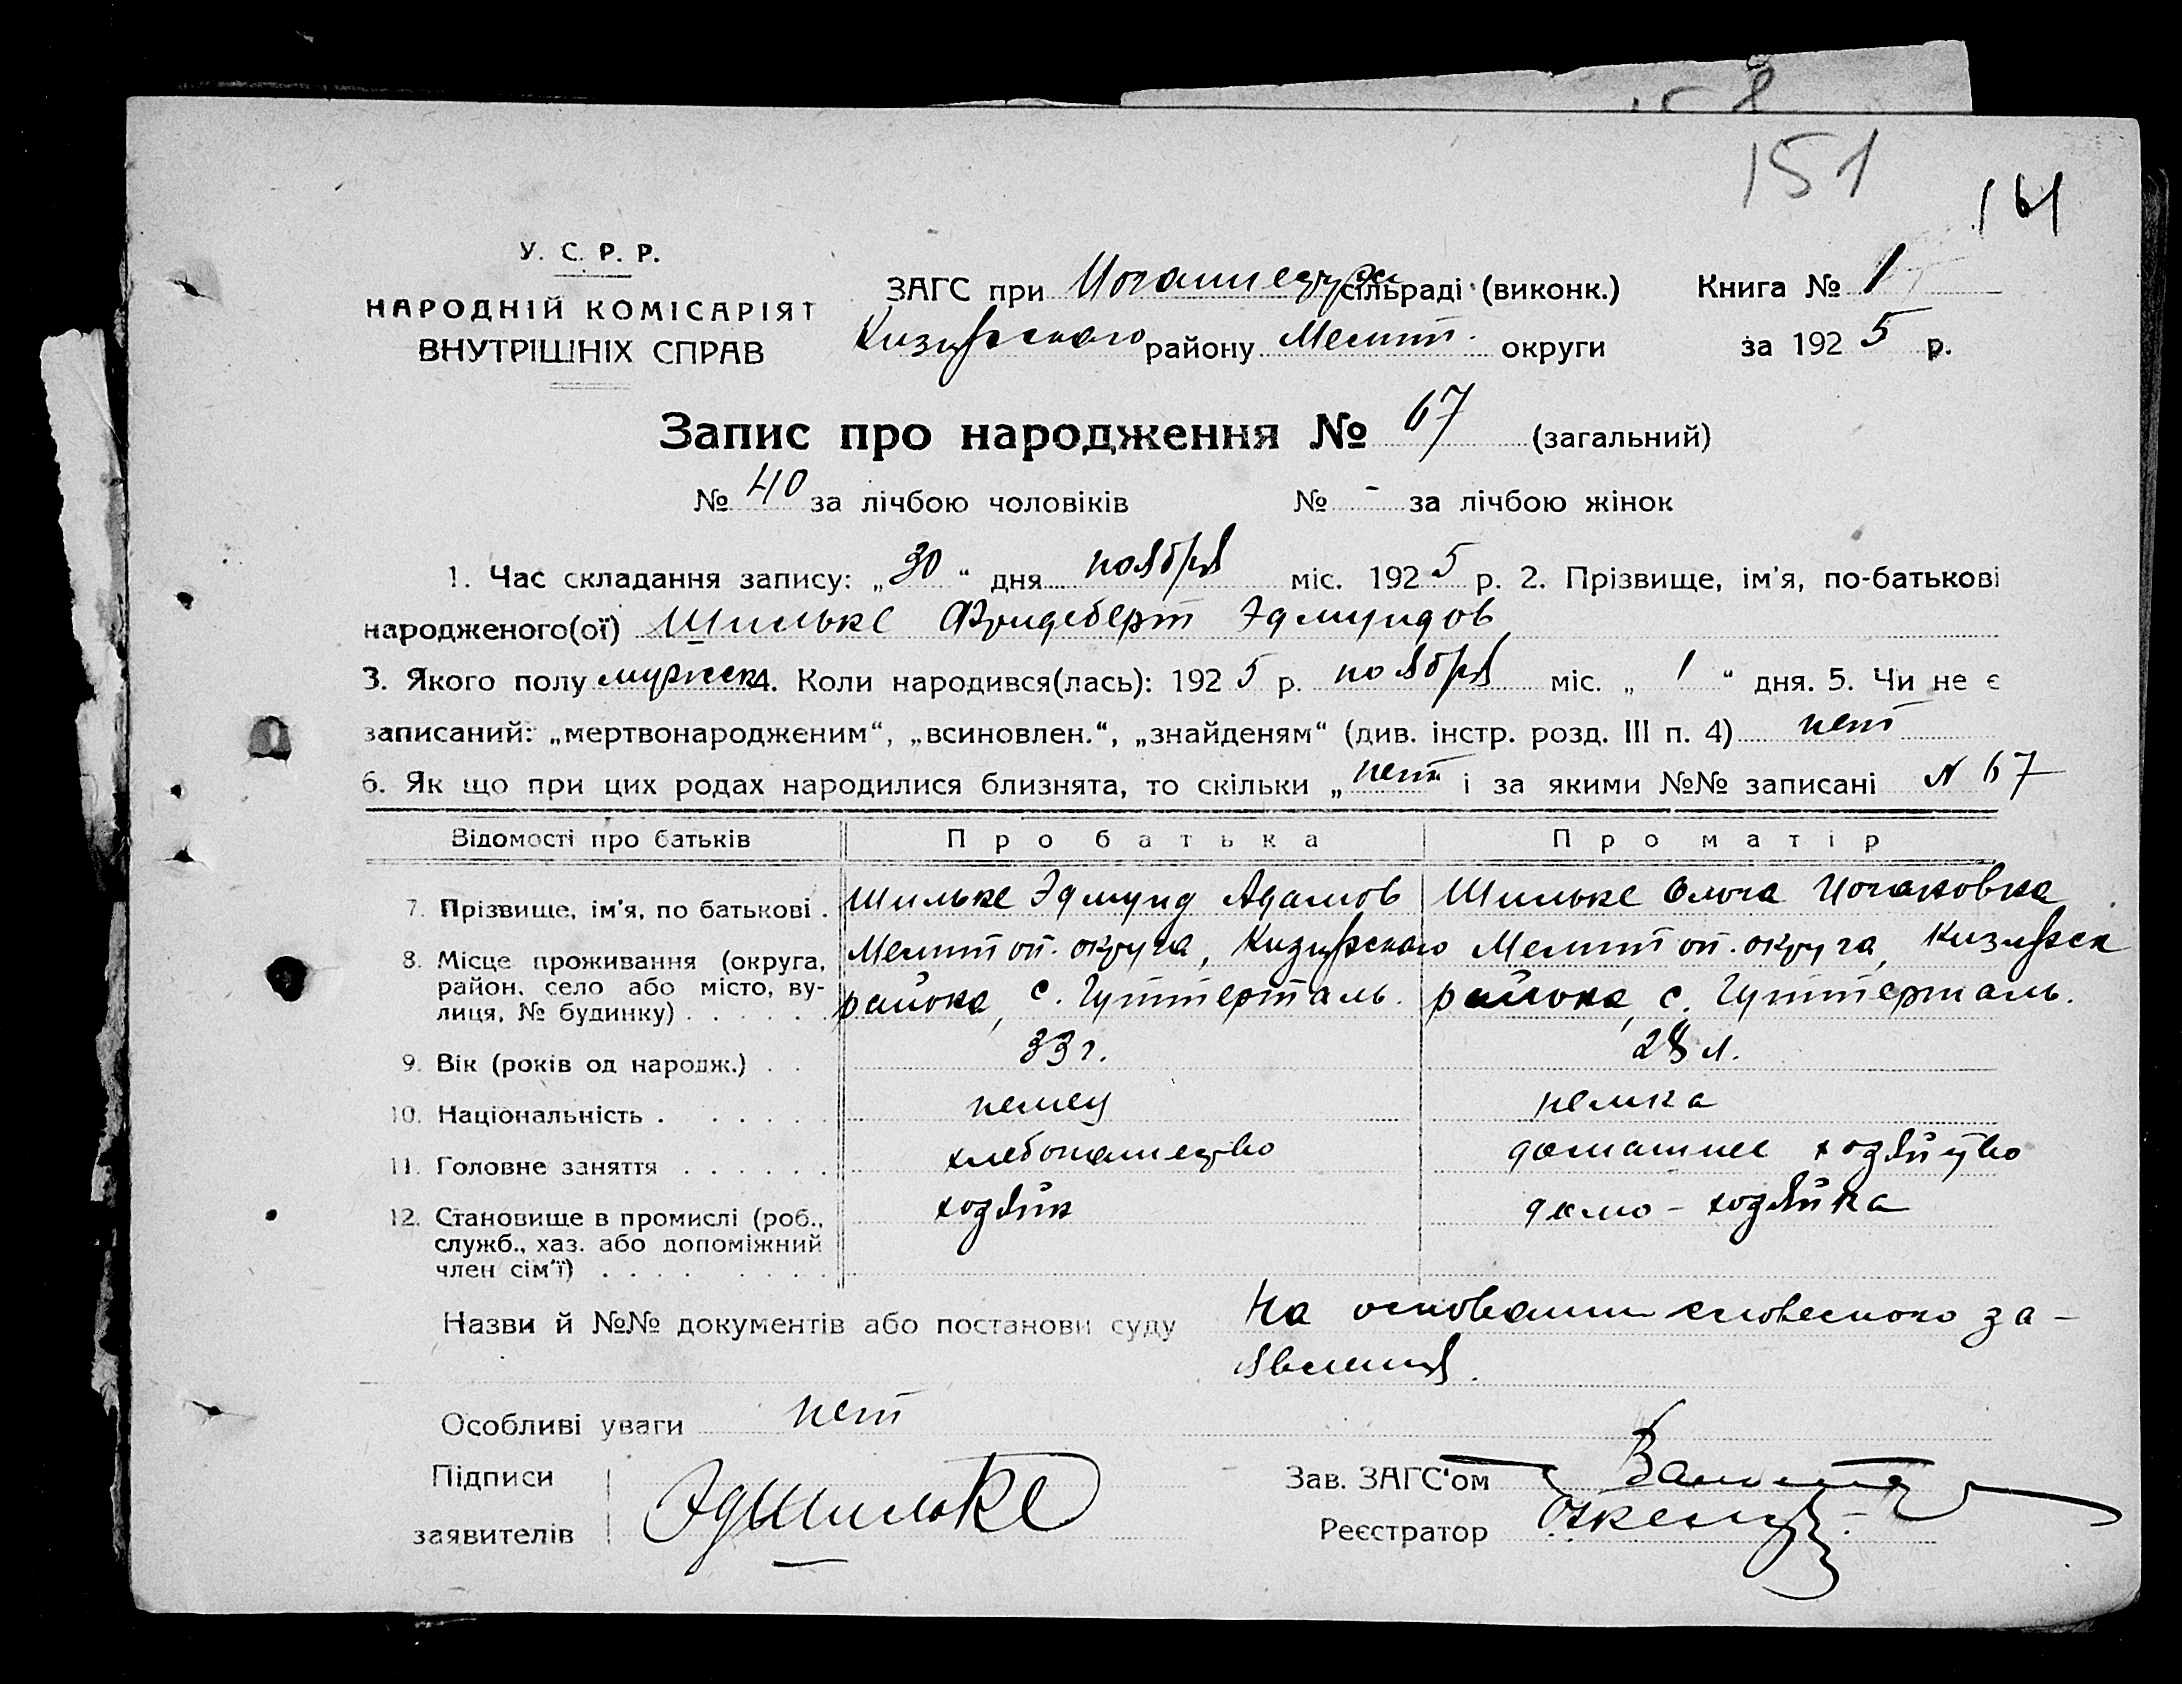 151
161
У. С. Р. Р.
НАРОДНІЙ КОМІСАРІЯТ
ВНУТРІШНІХ СПРАВ
ЗАГС при сільраді (виконк.)
районy Мелит. округи
Книга № 1
за 1925 р.
Запис про народження № 67 (загальний)
№ 40 за лічбою чоловіків № - за лічбою жінок
1. Час складання запису: „30“ дня ноября міс. 1925 р. 2. Прізвище, ім'я, по-батькові
народженого(ої) Шильке Фридеберт Эдмундов
3. Якого полу мужск 4. Коли народився(лась): 1925 р. ноября міс. „1“ дня. 5. Чи не є
записаний: „мертвонародженим“, „всиновлен.“, „знайденям“ (див. інстр. розд. III п. 4) нет
6. Як що при цих родах народилися близнята, то скільки „нет“ і за якими №№ записані № 67
Відомості про батьків Про батька Про матір
7. Прізвище, ім'я, по батькові . Шильке Эдмунд Адамов Шильке Ольга
8. Місце проживання (округа, район, село або місто, вулиця, № будинку) Мелитоп. округа, района, с. Гуттерталь. Мелитоп. округа, района, с. Гуттерталь.
9. Вік (років од народж.) . . 33 г. 28 л.
10. Національність . немец немка
11. Головне заняття хлебопашество домашнее хозяйство
12. Становище в промислі (роб., служб., хаз. або допоміжний член сім'ї) хозяин домо-хозяйка
Назви й №№ документів або постанови суду На основании словесного за-
явления.
Особливі уваги нет
Підписи
заявителів Эд Шильке
Зав. ЗАГС'ом
Реєстратор